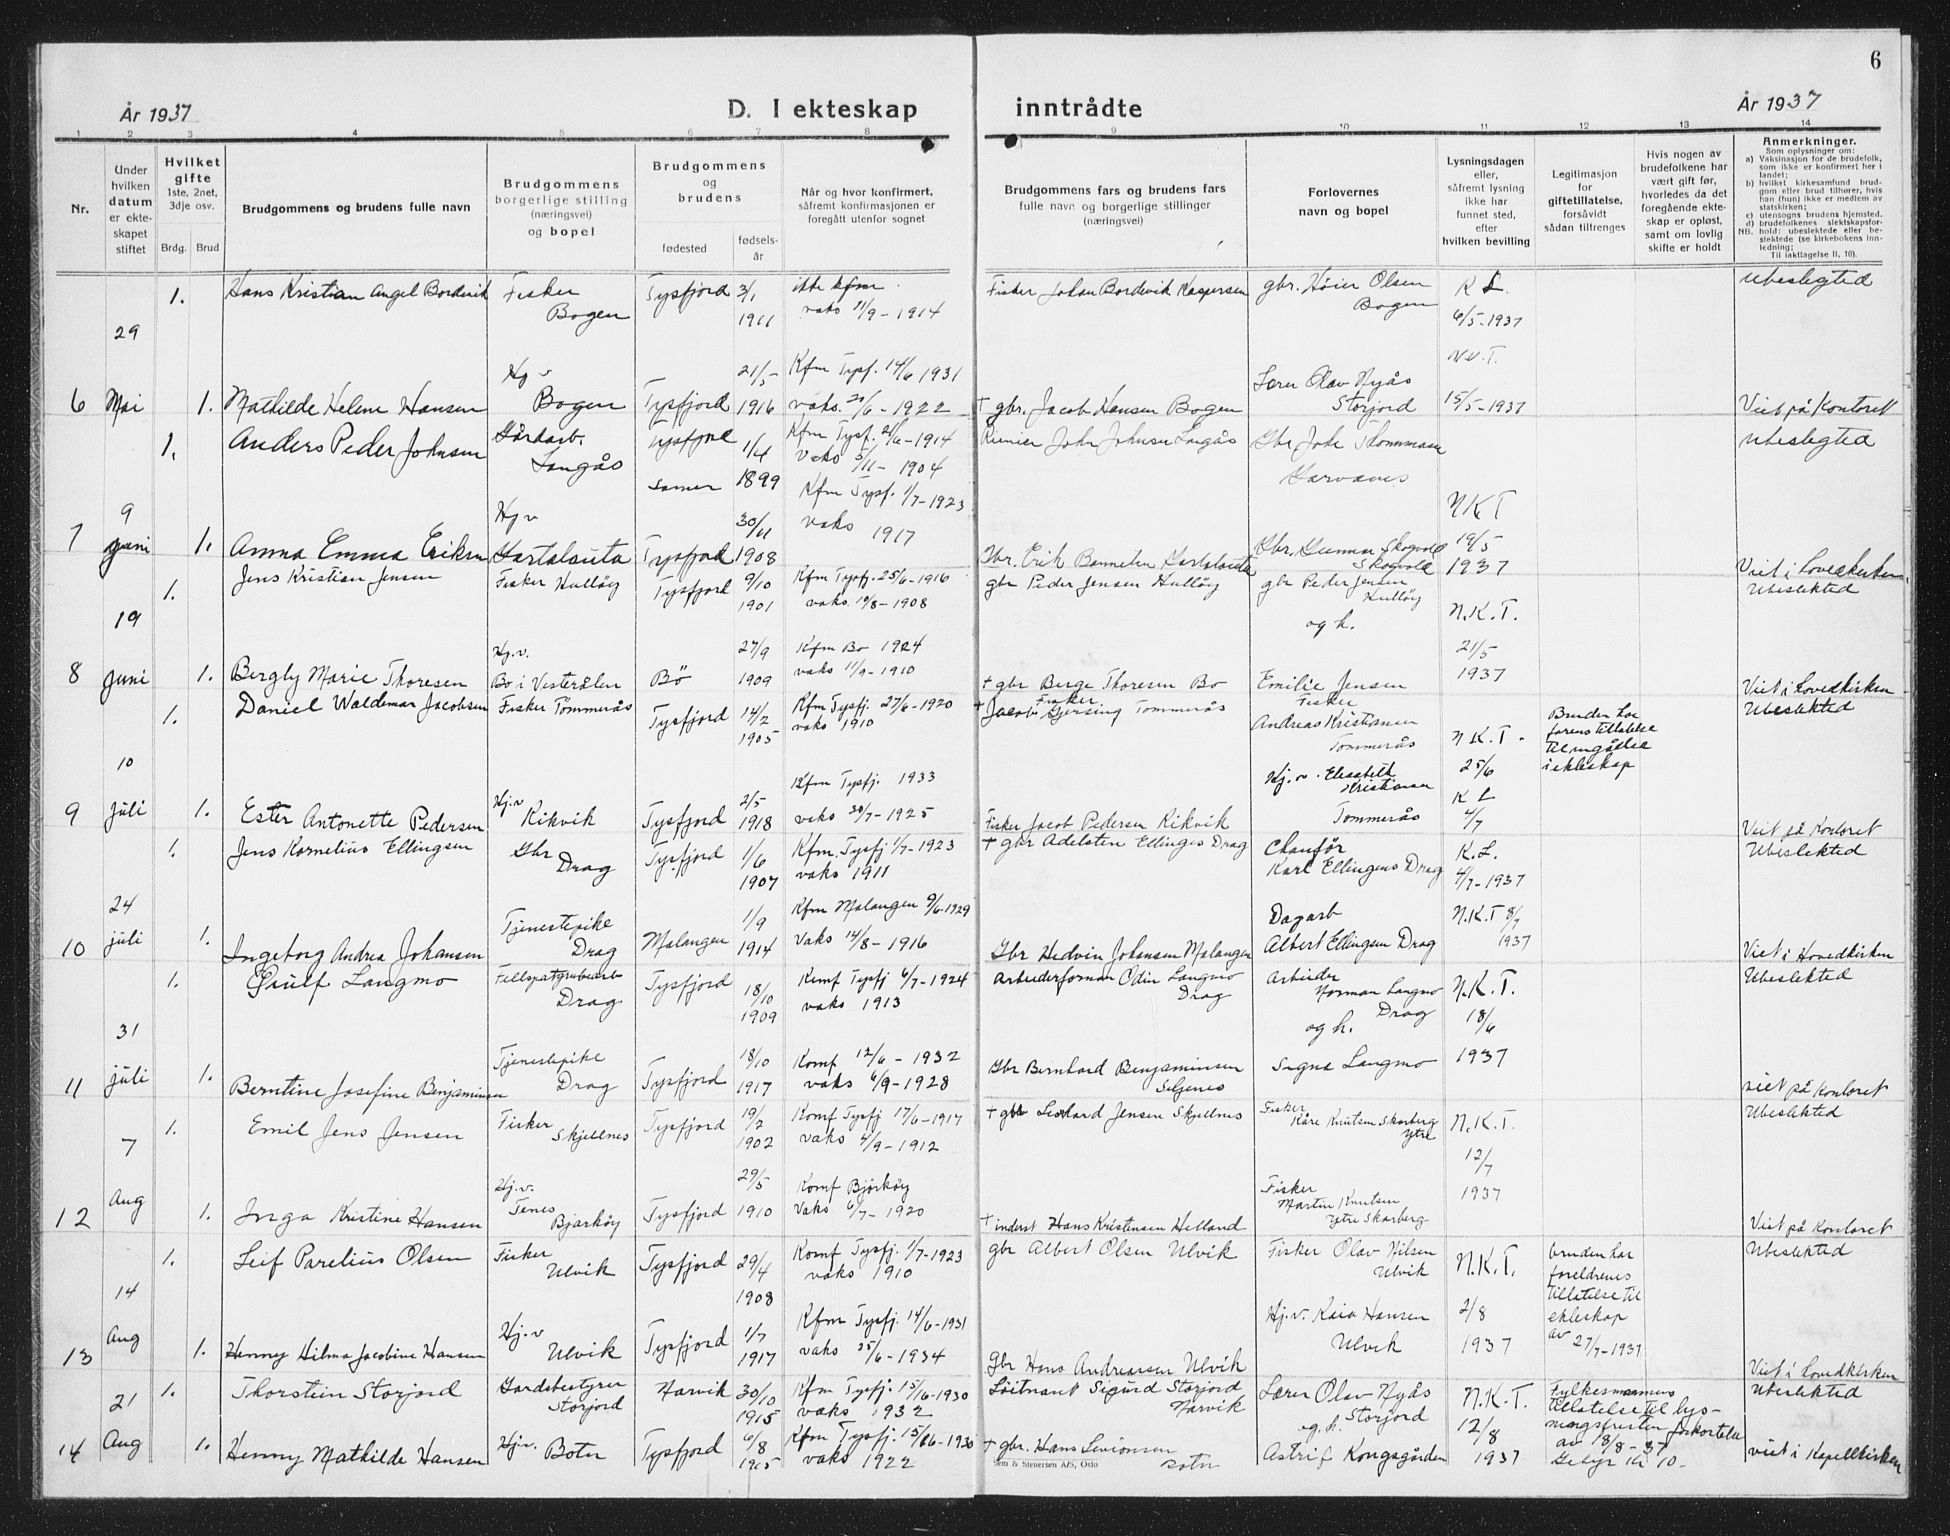 6
År 1937
D. I ekteskap inntrådte
År 1937
1 2 3 4 5 6 7 8 9 10 11 12 13 14
Nr.
Under hvilken datum er ekte-skapet stiftet
Hvilket gifte 1ste, 2net, 3dje osv.
Brdg. Brud
Brudgommens og brudens fulle navn
Brudgommens borgerlige stilling (næringsvei) og bopel
Brudgommens og brudens
fødested
fødsels-år
Når og hvor konfirmert, såfremt konfirmasjonen er foregått utenfor sognet
Brudgommens fars og brudens fars fulle navn og borgerlige stillinger (næringsvei)
Forlovernes navn og bopel
Lysningsdagen eller, såfremt lysning ikke har funnet sted, efter hvilken bevilling
Legitimasjon for giftetillatelse, forsåvidt sådan tiltrenges
Hvis nogen av brudefolkene har vært gift før, hvorledes da det foregående ekte-skap er opløst, samt om lovlig skifte er holdt
Anmerkninger.
Som oplysninger om:
a) Vaksinasjon for de brudefolk, som ikke er konfirmert her i landet;
b) hvilket kirkesamfund brud-gom eller brud tilhører, hvis han (hun) ikke er medlem av statskirken;
c) utensogns brudens hjemsted.
d) brudefolkenes slektskapsfor-
NB. hold: ubeslektede eller be-slektede (se kirkebokens inn-ledning;
Til iakttagelse II, 10).
1. Hans Kristian Angel Bordevik Fisker Bogen Tysfjord 3/1 1911 ikke kfm vaks 11/9 - 1914 Fisker Johan Bordevik Kaspersen gbr. Høier Olsen Bogen K L 6/5-1937 Ubeslegted
6 29 Mai 1. Mathilde Helene Hansen Hj v Bogen Tysfjord 21/5 1916 Kfm Tysf. 14/6 1931 vaks. 20/6 - 1922 † gbr. Jacob Hansen Bogen Lærer Olav Nyås Storjord 15/5-1937 Viet på Kontoret
1. Anders Peder Johnsen Gårdarb. Langås Tysfjord samer 1/4 1899 Kfm Tysf. 21/6-1914 Vaks 5/11 - 1904 John Johnsen Langås Gbr Ubeslegted
7 9 juni 1. Anna Emma Eriksen Hj v Tysfjord 30/11 1908 Kfm Tysf. 1/7-1923 vaks 1917 Gbr. Erik Gbr. Gunnar Skogvoll Skogvoll N K T 19/5 1937 Viet i
1. Jens Kristian Jensen Fisker Hulløy Tysfjord 9/10 1901 Kfm Tysfj. 25/6-1916 vaks. 10/8-1908 gbr Peder Jensen Hulløy gbr Peder Jensen Hulløy og h. N.K.T. Ubeslekted
8 19 juni 1. Bergly Marie Thoresen Hj.v. Bo i Vesterålen Bö 27/9 1909 Kfm Bo 1924 vaks 11/9-1910 † gbr Berge Thoresen Bo Emilie Jensen 21/5 1937 Viet i
1. Daniel Waldemar Jacobsen Fisker Tömmerås Tysfjord 14/2 1905 Kfm Tysfj. 27/6-1920 vaks 1910 † Fisker Jacob Gjersing Tommerås Fisker Andreas Kristiansen Tommerås N K. T. 25/6 Bruden har Ubeslekted
9 10 juli 1. Ester Antonette Pedersen Hj.v Kikvik Tysfjord 2/5 1918 Kfm Tysfj. 1933 vaks 30/7-1925 Fisker Jacob Pedersen Kikvik Hj.v. Elisabeth Kristiansen Tommerås K L 4/7 Viet på Kontoret
1. Jens Kornelius Ellingsen Gbr Drag Tysfjord 1/6 1907 Kfm. Tysfj 1/7-1923 vaks 1911 † gbr Adelsten Ellingsen Drag Chauför Karl Ellingsens Drag K.L. 4/7-1937 Ubeslekted
10 24 juli 1. Ingeborg Andrea Johansen Tjenestepike Drag Malangen 1/9 1914 Kfm Malangen 9/6-1929 Vaks 14/8-1916 Gbr Hedvin Johansen Malangen Dagarb Albert Ellingsen Drag N.K.T 8/7 1937 Viet i Hovedkirken
1. Ørulf Langmo Drag Tysfjord 18/10 1909 Komf Tysfj 6/7-1924 vaks 1913 arbeiderforman Odin Langmo Drag Arbeider Norman Langmo Drag og h. N.K.T. 18/6 Ubeslekted
11 31 juli 1. Berntine Josefine Benjaminsen Tjenestepike Drag Tysfjord 18/10 1917 Komf 12/6-1932 vaks 6/9-1928 Gbr Bernhard Benjaminsen Seljenes Signe Langmo 1937 Viet på Kontoret
1. Emil Jens Jensen Fisker Skjellnes Tysfjord 19/2 1902 Komf Tysfj 17/6-1917 vaks 4/9-1912 † gbr Jensen Skjellnes Fisker Kåre Knutsen Skarberg ytre N.K.T. 12/7 Ubeslekted
12 7 Aug 1. Inga Kristine Hansen Hj.v. Bjarköy Tysfjord 29/5 1910 Komf Bjarköy Vaks 6/7-1920 † inderst Hans Kristensen Helland Fisker Martin Knutsen ytre Skarberg 1937 Viet på Kontoret
1. Leif Parelius Olsen Fisker Ulvik Tysfjord 29/4 1908 Komf Tysfj. 1/7-1923 vaks 1910 gbr Albert Olsen Ulvik Fisker Olav Nilsen Ulvik N.K.T. bruden har foreldrenes tillatelse til ekteskap av 27/7-1937 Ubeslekted
13 14 Aug 1. Henny Hilma Jacobine Hansen Hj.v Ulvik Tysfjord 1/7 1917 Kfm Tysfj. 14/6-1931 vaks 25/6-1934 Gbr Hans Andreassen Ulvik Hj.v. Kaia Hansen Ulvik 2/8 1937 Viet i
1. Thorstein Storjord Gardsbestyrer Storjord Narvik 30/10 1915 Kfm Tysfj. 15/6-1930 vaks 1932 Löitnant Sigurd Storjord Narvik Lærer Olav Nyås Storjord og h. N.K.T. Fylkesmannens tillatelse til lys-ningsfristen forkortelse av 18/8-37 Gebyr Kr 10- Ubeslekted
14 21 Aug 1. Henny Mathilde Hansen Hj.v. Botn Tysfjord 6/8 Kfm Tysfj. 15/6-1930 vaks 1922 † gbr. Hans Simonsen Botn Astrif Kongsgården 12/8 1937 viet i Kapellkirken
Sem & Stenersen A/S, Oslo